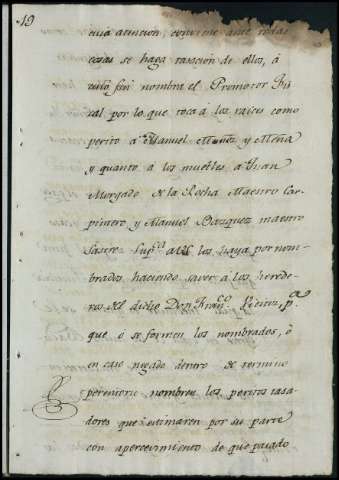 19
cuia atencion, conviene ante todas
cosas se haga tasacion de ellos, á
cuio fin nombra el Promotor Fis
cal por lo que toca á los raices como
perito á Manuel Muñoz y Mena
y quanto á los muebles a Juan
Morgado de la Rocha Maestro Car
pintero y Manuel Vazquez maestro
Sastre Supca. a Vd. los haya por nom-
brados haciendo saver á los herede
ros del dicho Don Franco. pa.
que ó se formen los nombrados, ó
en caso negado dentro de termino
perentorio nombren los peritos tasa
dores que estimaren por su parte
con apercevimiento de que pasado